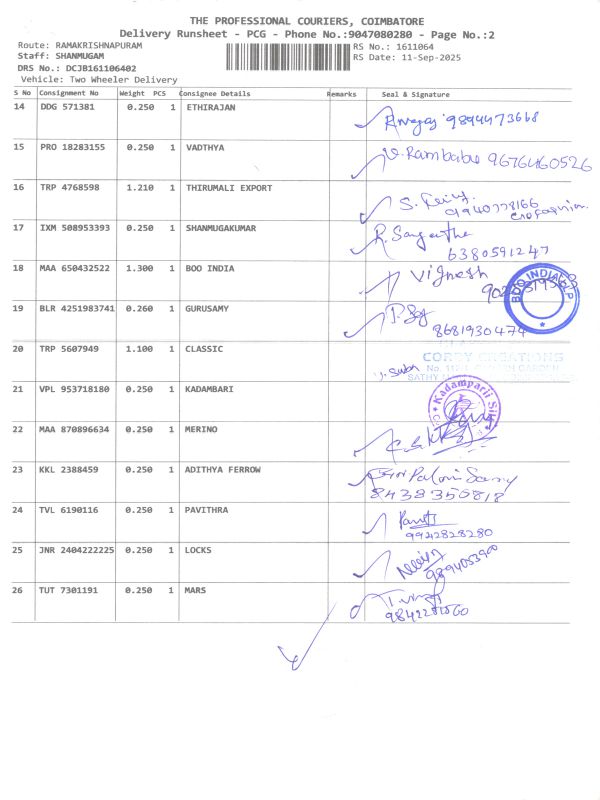 THE PROFESSIONAL COURIERS, COIMBATORE
Delivery Runsheet - PCG - Phone No.:9047080280 - Page No.:2
Route: RAMAKRISHNAPURAM RS No.: 1611064
Staff: SHANMUGAM RS Date: 11-Sep-2025
DRS No.: DCJB161106402
Vehicle: Two Wheeler Delivery
S No Consignment No Weight PCS Consignee Details Remarks Seal & Signature
14 DDG 571381 0.250 1 ETHIRAJAN 9894473668
15 PRO 18283155 0.250 1 VADTHYA V. Rambabu 9676460526
16 TRP 4768598 1.210 1 THIRUMALI EXPORT
9940778166
17 IXM 508953393 0.250 1 SHANMUGAKUMAR R. Sangeetha
6380591247
18 MAA 650432522 1.300 1 BOO INDIA Vignesh
BOO INDIA LLP
19 BLR 4251983741 0.260 1 GURUSAMY
8681930474
20 TRP 5607949 1.100 1 CLASSIC
CORDY CREATIONS
21 VPL 953718180 0.250 1 KADAMBARI
Kadamparii Silk
22 MAA 870896634 0.250 1 MERINO
23 KKL 2388459 0.250 1 ADITHYA FERROW Palani Samy
8438350818
24 TVL 6190116 0.250 1 PAVITHRA
9942828280
25 JNR 2404222225 0.250 1 LOCKS
9894053900
26 TUT 7301191 0.250 1 MARS